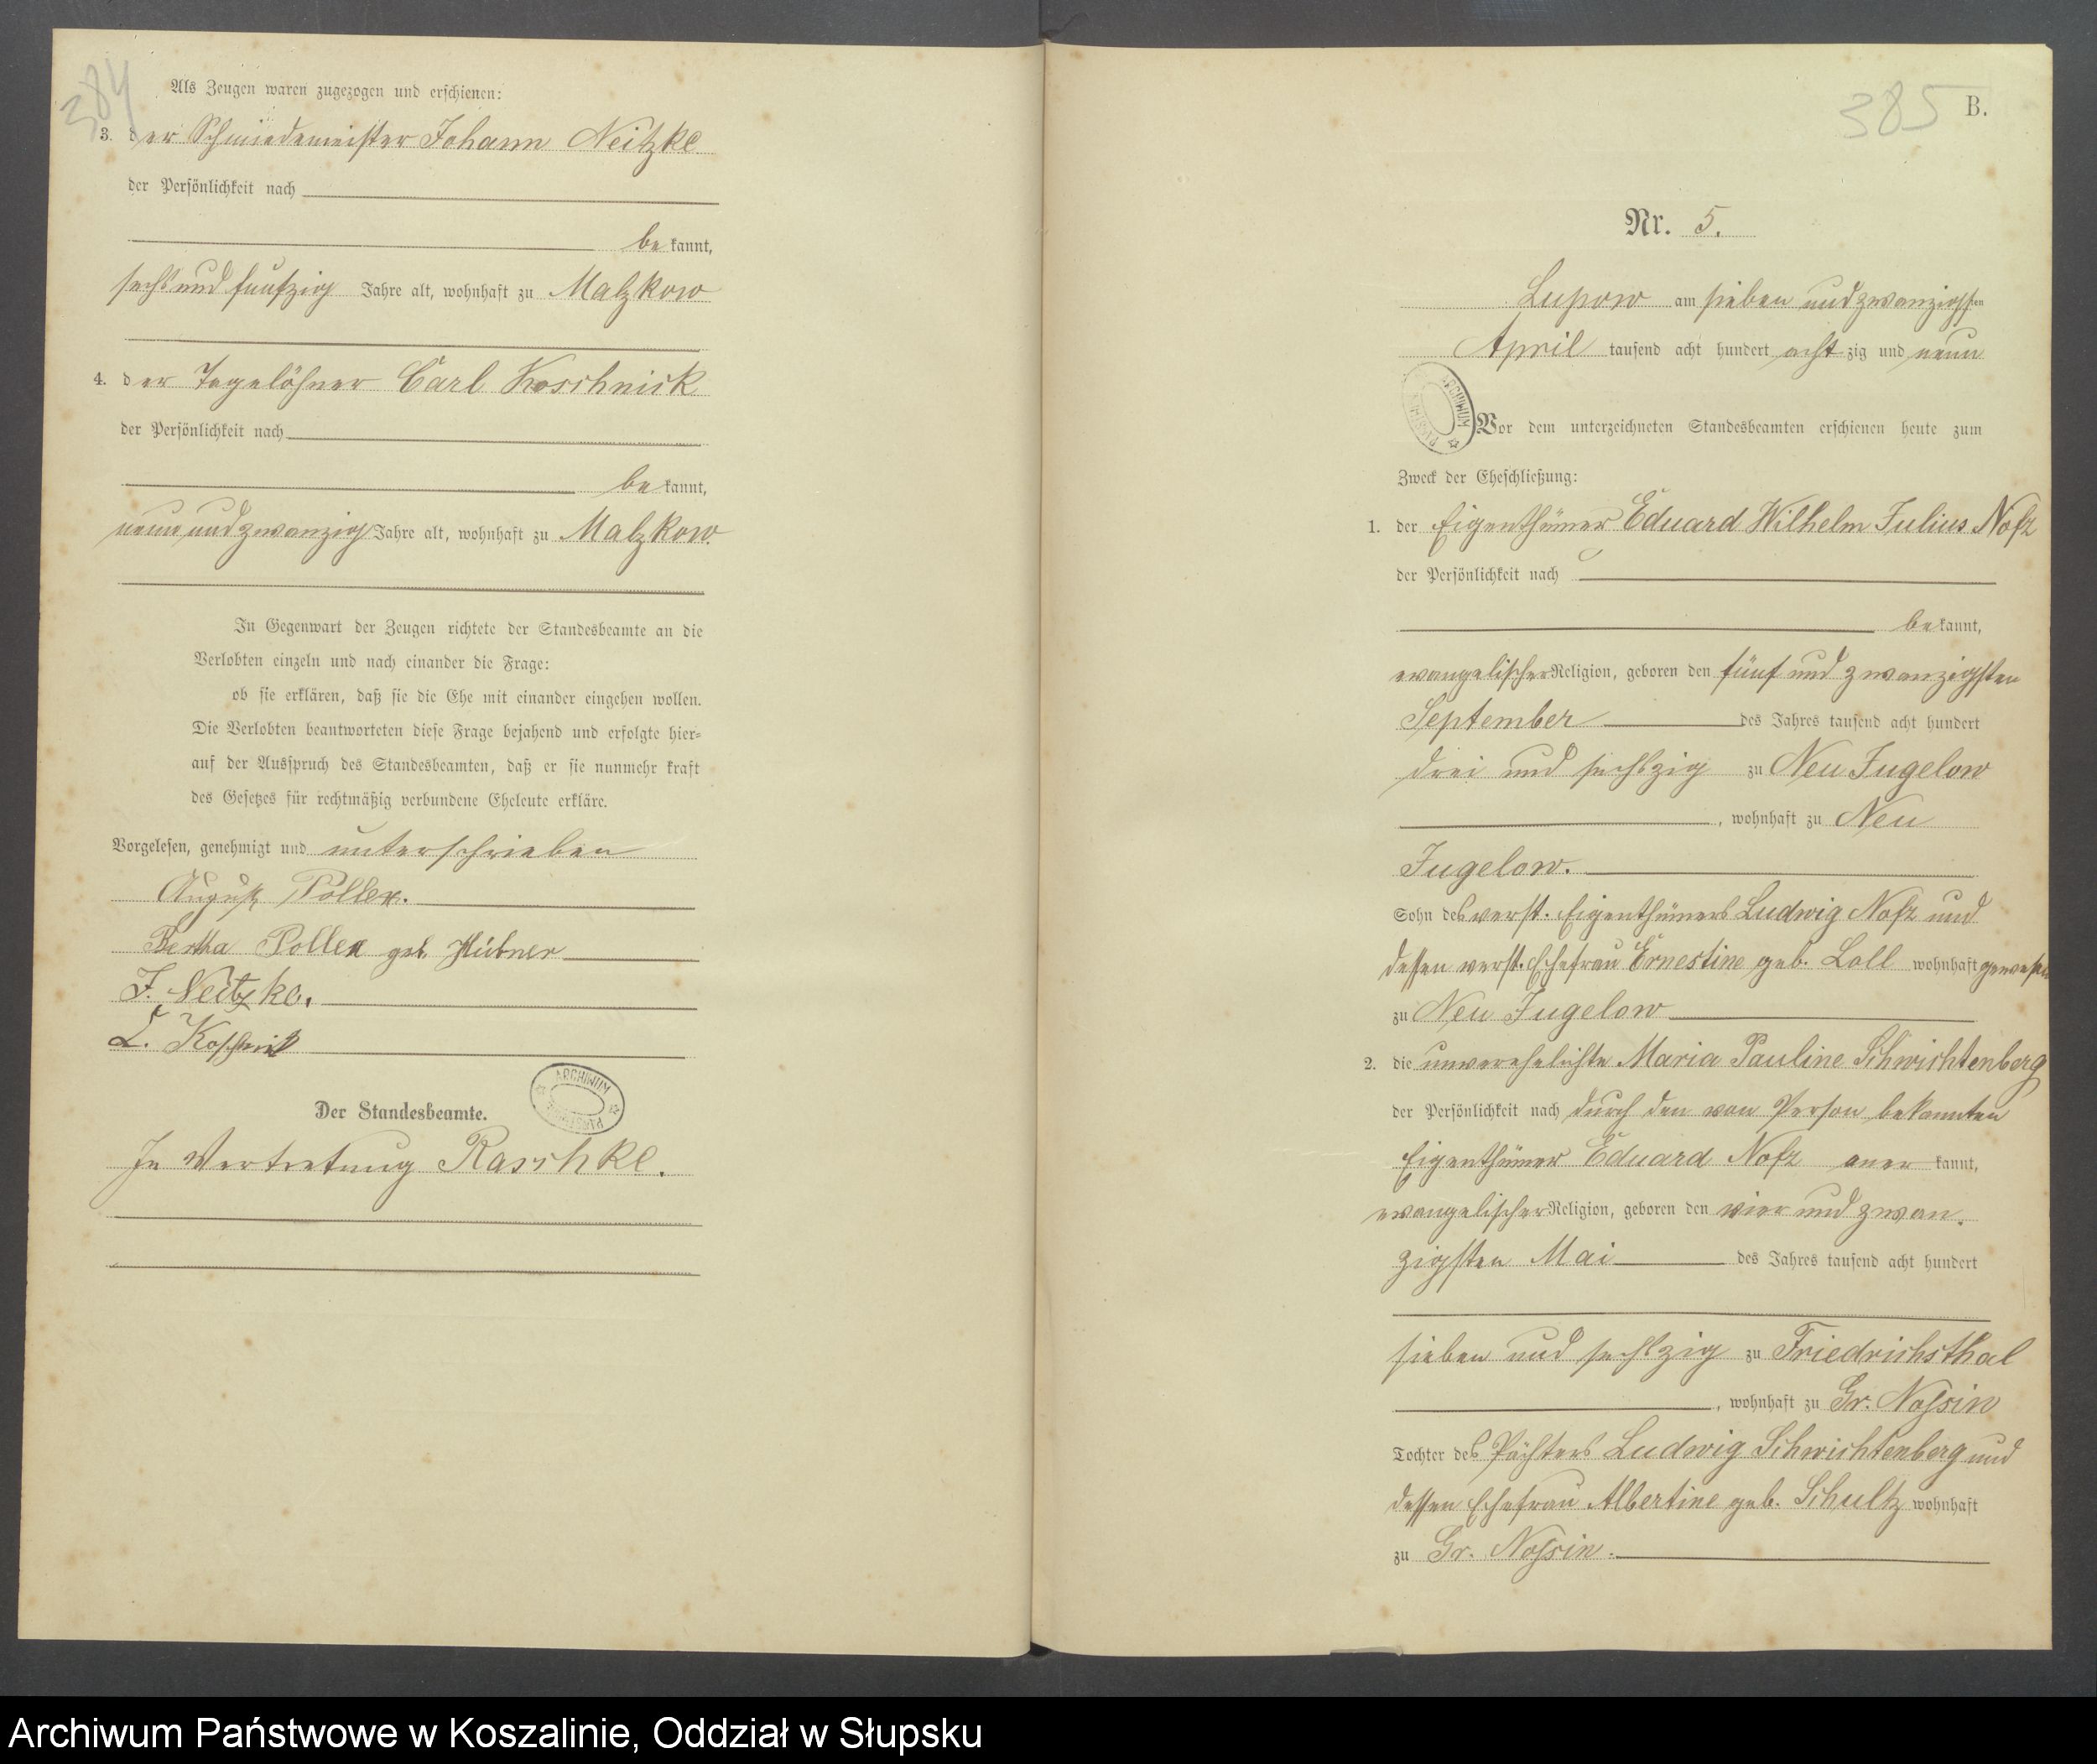 384
Als Zeugen waren zugezogen und erschienen:
3. der Schmiedemeister Johann Neitzke
der Persönlichkeit nach
bekannt,
sechs und funfzig Jahre alt, wohnhaft zu Malzkow
4. der Tagelöhner Carl Koschnick
der Persönlichkeit nach
bekannt,
neun und zwanzig Jahre alt, wohnhaft zu Malzkow.
In Gegenwart der Zeugen richtete der Standesbeamte an die
Verlobten einzeln und nach einander die Frage:
ob sie erklären, daß sie die Ehe mit einander eingehen wollen.
Die Verlobten beantworteten diese Frage bejahend und erfolgte hier=
auf der Ausspruch des Standesbeamten, daß er sie nunmehr kraft
des Gesetzes für rechtmäßig verbundene Eheleute erkläre.
Vorgelesen, genehmigt und unterschrieben
August Pollex.
Bertha Pollex geb. Hübner
J. Neitzke.
C. Koschnik
ARCHIWUM
Der Standesbeamte.
In Vertretung Raschke.
385 B.
Nr. 5.
Lupow am sieben und zwanzigsten
April tausend acht hundert achtzig und neun
ARCHIWUM
Vor dem unterzeichneten Standesbeamten erschienen heute zum
Zweck der Eheschließung:
1. der Eigenthümer Eduard Wilhelm Julius Nofz
der Persönlichkeit nach
bekannt,
evangelischer Religion, geboren den fünf und zwanzigsten
September des Jahres tausend acht hundert
drei und sechszig zu Neu Jugelow
, wohnhaft zu Neu
Jugelow.
Sohn des verst. Eigenthümers Ludwig Nofz und
dessen verst. Ehefrau Ernestine geb. Loll wohnhaft gewesen
zu Neu Jugelow
2. die unverehelichte Maria Pauline Schwichtenberg
der Persönlichkeit nach durch den von Person bekannten
Eigenthümer Eduard Nofz anerkannt,
evangelischer Religion, geboren den vier und zwan-
zigsten Mai des Jahres tausend acht hundert
sieben und sechszig zu Friedrichsthal
, wohnhaft zu Gr. Nossin
Tochter des Pächters Ludwig Schwichtenberg und
dessen Ehefrau Albertine geb. Schultz wohnhaft
zu Gr. Nossin.
Archiwum Państwowe w Koszalinie, Oddział w Słupsku